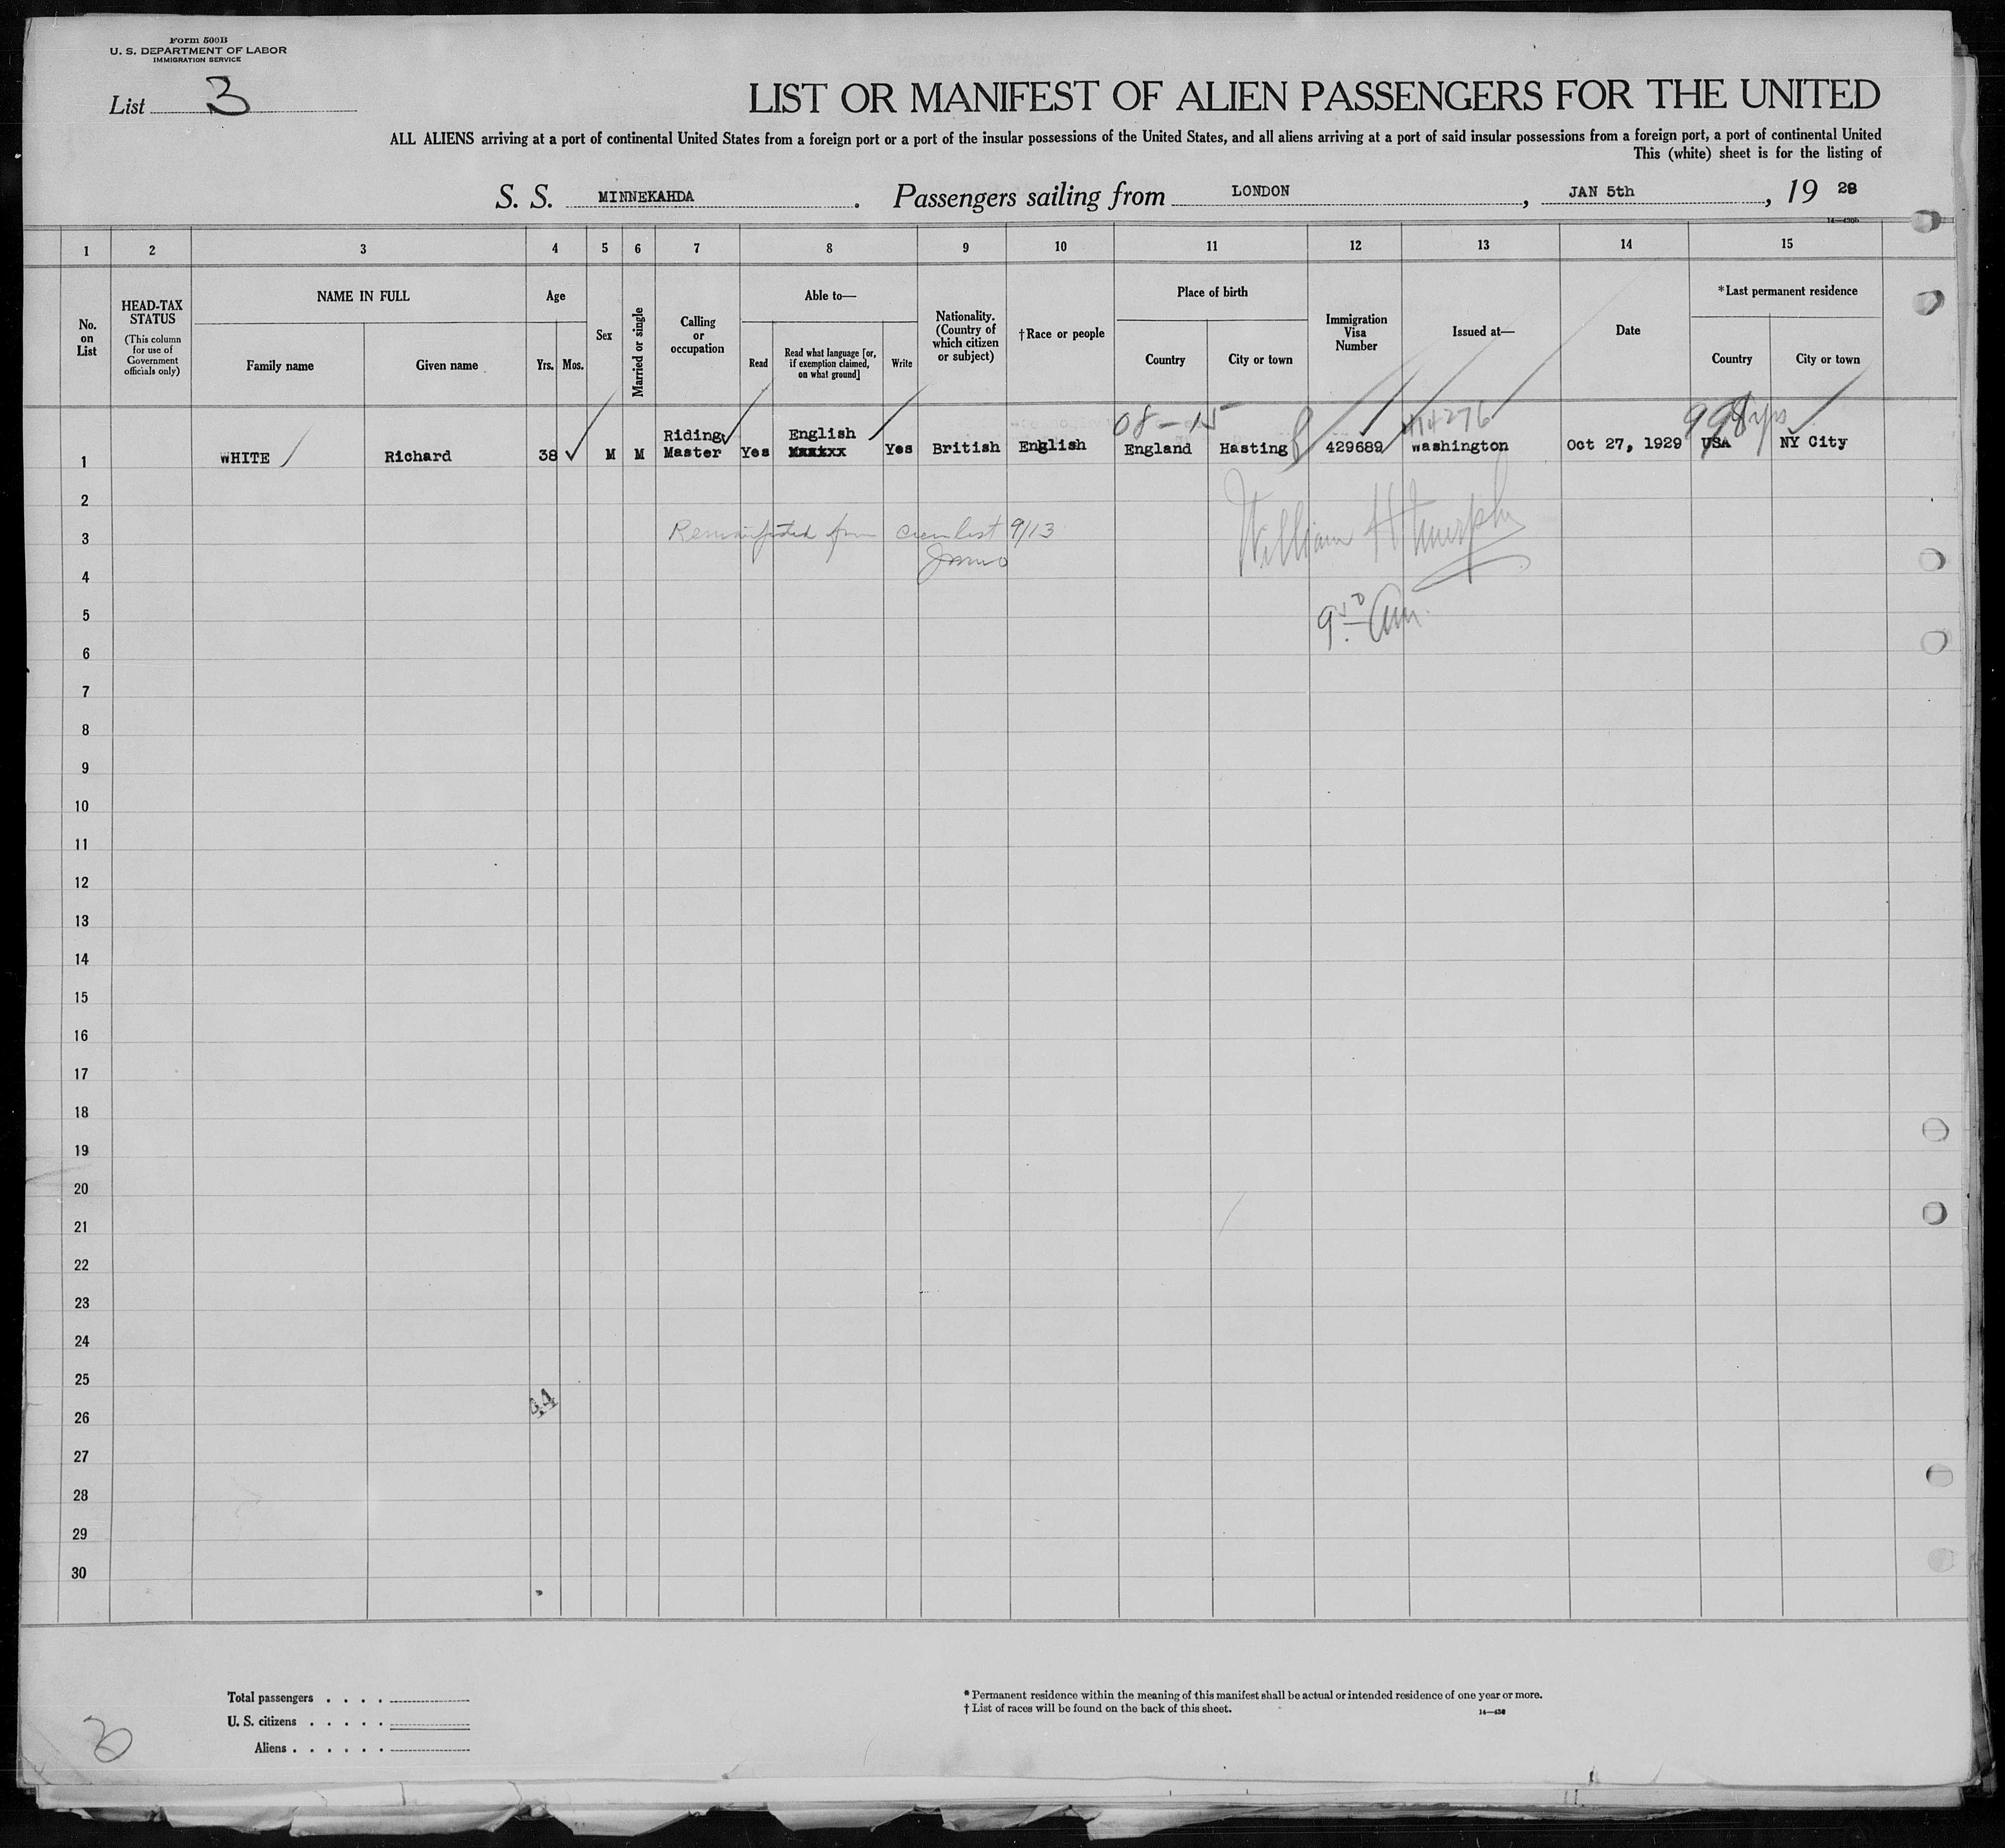 Form 500B
U. S. DEPARTMENT OF LABOR
IMMIGRATION SERVICE
List 3
LIST OR MANIFEST OF ALIEN PASSENGERS FOR THE UNITED
ALL ALIENS arriving at a port of continental United States from a foreign port or a port of the insular possessions of the United States, and all aliens arriving at a port of said insular possessions from a foreign port, a port of continental United
This (white) sheet is for the listing of
S. S. MINNEKAHDA . Passengers sailing from LONDON , JAN 5th , 19 28
1 2 3 4 5 6 7 8 9 10 11 12 13 14 15
No. on List
HEAD-TAX STATUS
(This column for use of Government officials only)
NAME IN FULL
Family name
Given name
Age
Yrs. Mos.
Sex
Married or single
Calling or occupation
Able to—
Read
Read what language [or, if exemption claimed, on what ground]
Write
Nationality. (Country of which citizen or subject)
†Race or people
Place of birth
Country
City or town
Immigration Visa Number
Issued at—
Date
*Last permanent residence
Country
City or town
08-15
1 WHITE Richard 38 M M Riding Master Yes English Yes British English England Hasting 429689 Washington Oct 27, 1929 USA NY City
2
3 9/13
4
William H Murphy
5
6
7
8
9
10
11
12
13
14
15
16
17
18
19
20
21
22
23
24
25
26
27
28
29
30
Total passengers . . . .
U. S. citizens . . . . .
Aliens . . . . . .
* Permanent residence within the meaning of this manifest shall be actual or intended residence of one year or more.
† List of races will be found on the back of this sheet.